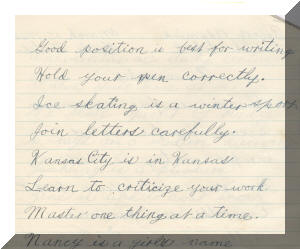 Good position is best for writing
Hold your pen correctly.
Ice skating is a winter sport.
Join letters carefully.
Kansas City is in Kansas
Learn to criticize your work
Master one thing at a time.
Nancy is a girl's name